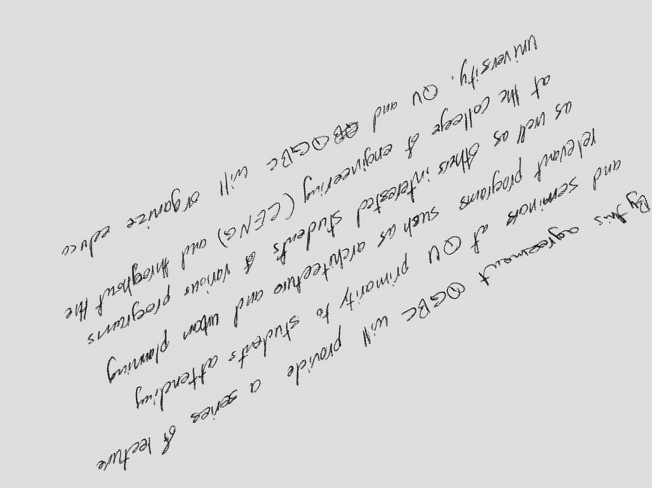 By this agreement QGBC will provide a series of lecture
and seminars at QU primarity to students attending
relevant programs such as architecture and urban planning
as well as others interested students of various programs
at the college of engineering (CENG) and throghout the
university. QU and QGBC will organize educa